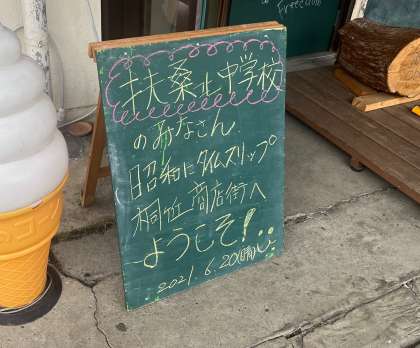 Freedom
扶桑北中学校
のみなさん
昭和にタイムスリップ
桐丘商店街へ
ようこそ!
2021.6.20(晴)